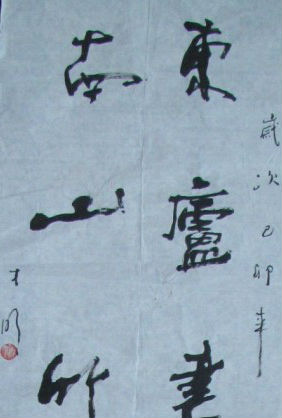 歲次己卯年
東廬
南山竹
才明